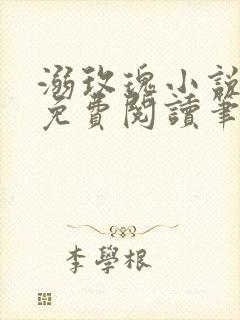 溺玫瑰小說
免費閱讀筆
李學根